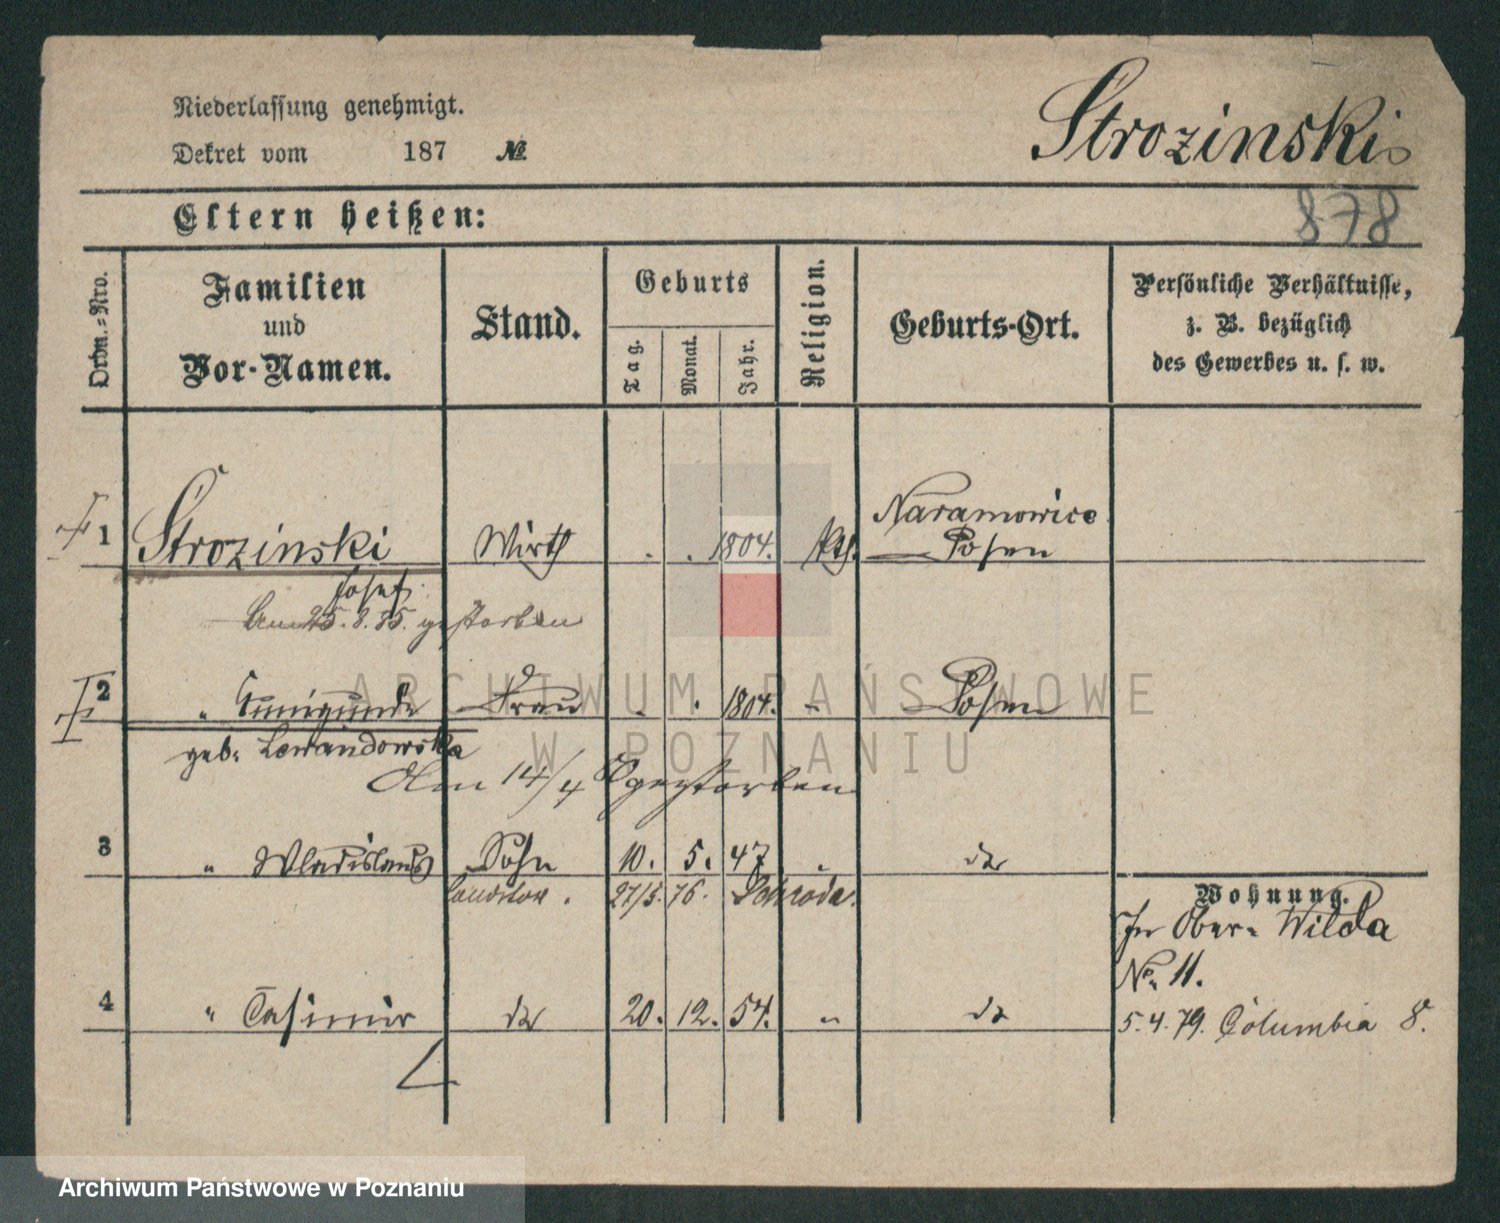 Niederlassung genehmigt.
Dekret vom 187 №
Strozinski
Eltern heißen:
878
Ordn.-Nro.
Familien
und
Vor-Namen.
Stand.
Geburts
Tag.
Monat.
Jahr.
Religion.
Geburts-Ort.
Persönliche Verhältnisse,
z. B. bezüglich
des Gewerbes u. s. w.
1 Strozinski Wirth . . 1804. kth. Naramowice
Posen
Josef
25. 8. 85. gestorben
2 " Cunigunde Frau . . 1804. " Posen
geb. Lewandowska
Am 14/4 gestorben
3 " Wladislaus Sohn 10. 5. 47 " do
Conditor. 27/5. 76. Schroda.
Wohnung.
In Ober-Wilda
No. 11.
4 " Casimir do 20. 12. 54. " do
5. 4. 79. Columbia 8.
ARCHIWUM PAŃSTWOWE
W POZNANIU
Archiwum Państwowe w Poznaniu